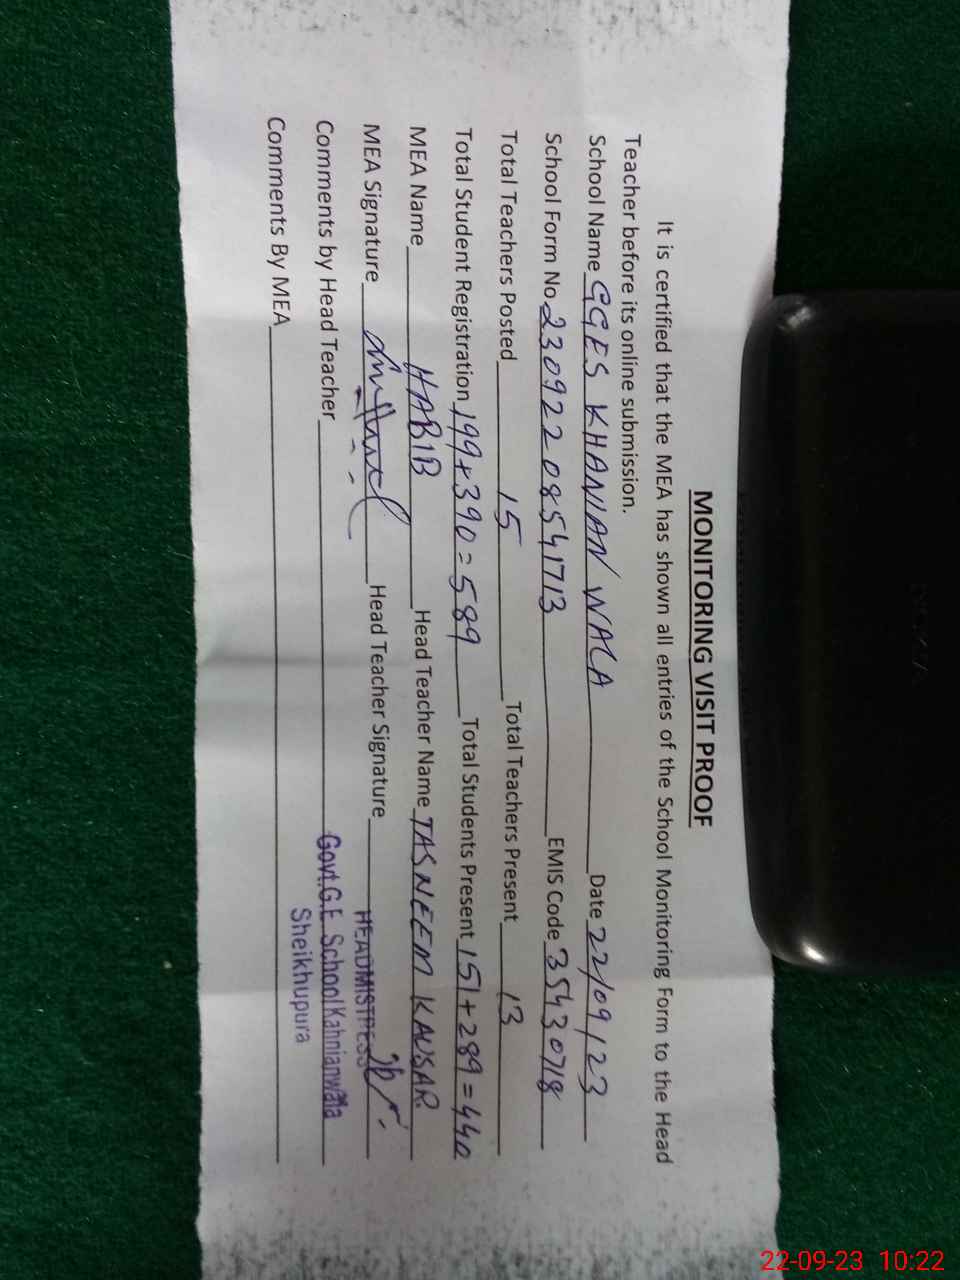 MONITORING VISIT PROOF
It is certified that the MEA has shown all entries of the School Monitoring Form to the Head
Teacher before its online submission.
School Name GGES KHANIAN WALA Date 22/09/23
School Form No 230922 08541713 EMIS Code 35430718
Total Teachers Posted 15 Total Teachers Present 13
Total Student Registration 199+390=589 Total Students Present 151+289=440
MEA Name HABIB Head Teacher Name TASNEEM KAUSAR
MEA Signature Head Teacher Signature
HEADMISTRESS
Comments by Head Teacher Govt.G.E School Kahnianwala
Sheikhupura
Comments By MEA
22-09-23 10:22